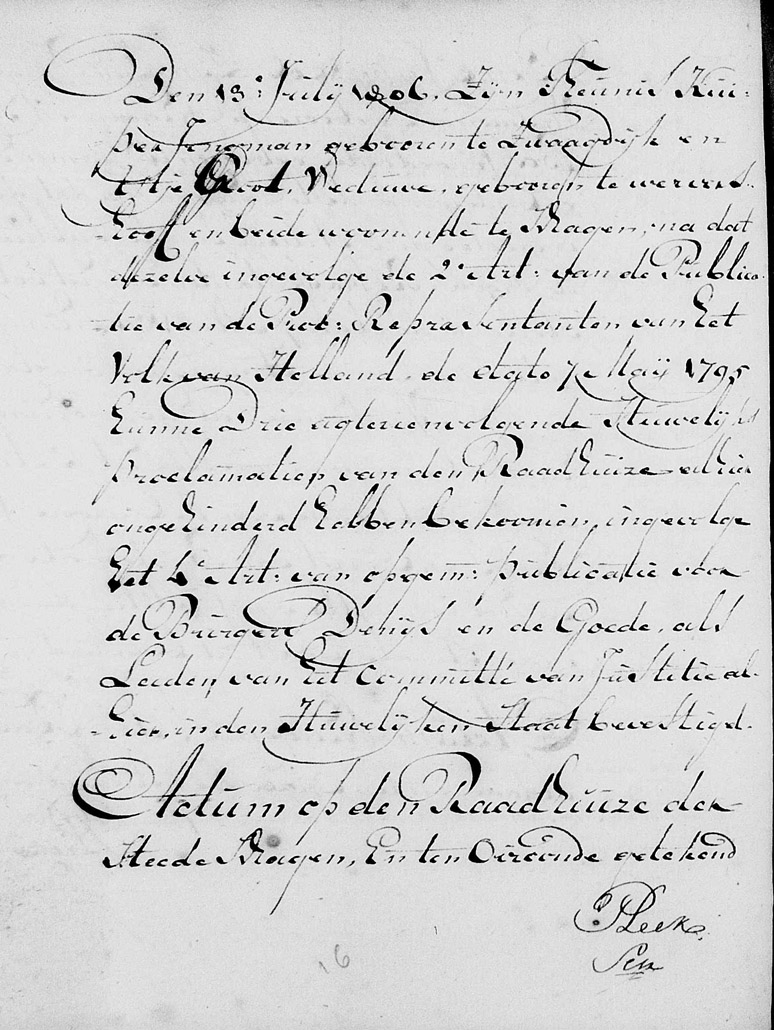 Den 13.e July 1806. Zijn Teunis Kui=
per Jongman gebooren te Zwaagdijk en
Groot, Weduwe, gebooren te wervers=
=hooff en beide woonende te Hagen, na dat
dezelve ingevolge de 2e Art: van de Publica
tie van de Prov: Repraesentanten van het
Volk van Holland, de dato 7 Maij 1795
hunne Drie agtereenvolgende Huwelijks
Proclamatien van den Raadhuize alhier
ongehinderd hebben bekoomen, ingevolge
het 4e Art: van opgem: publicatie voor
de Burgers Dehijs en de Goede, als
Leeden van het Committé van Justitie al=
=hier, in den Huwelijken Staat bevestigd.
Actum op den Raadhuize der
Steede Hagen, En ten Oirconde getekend
PLeek
Sec
16